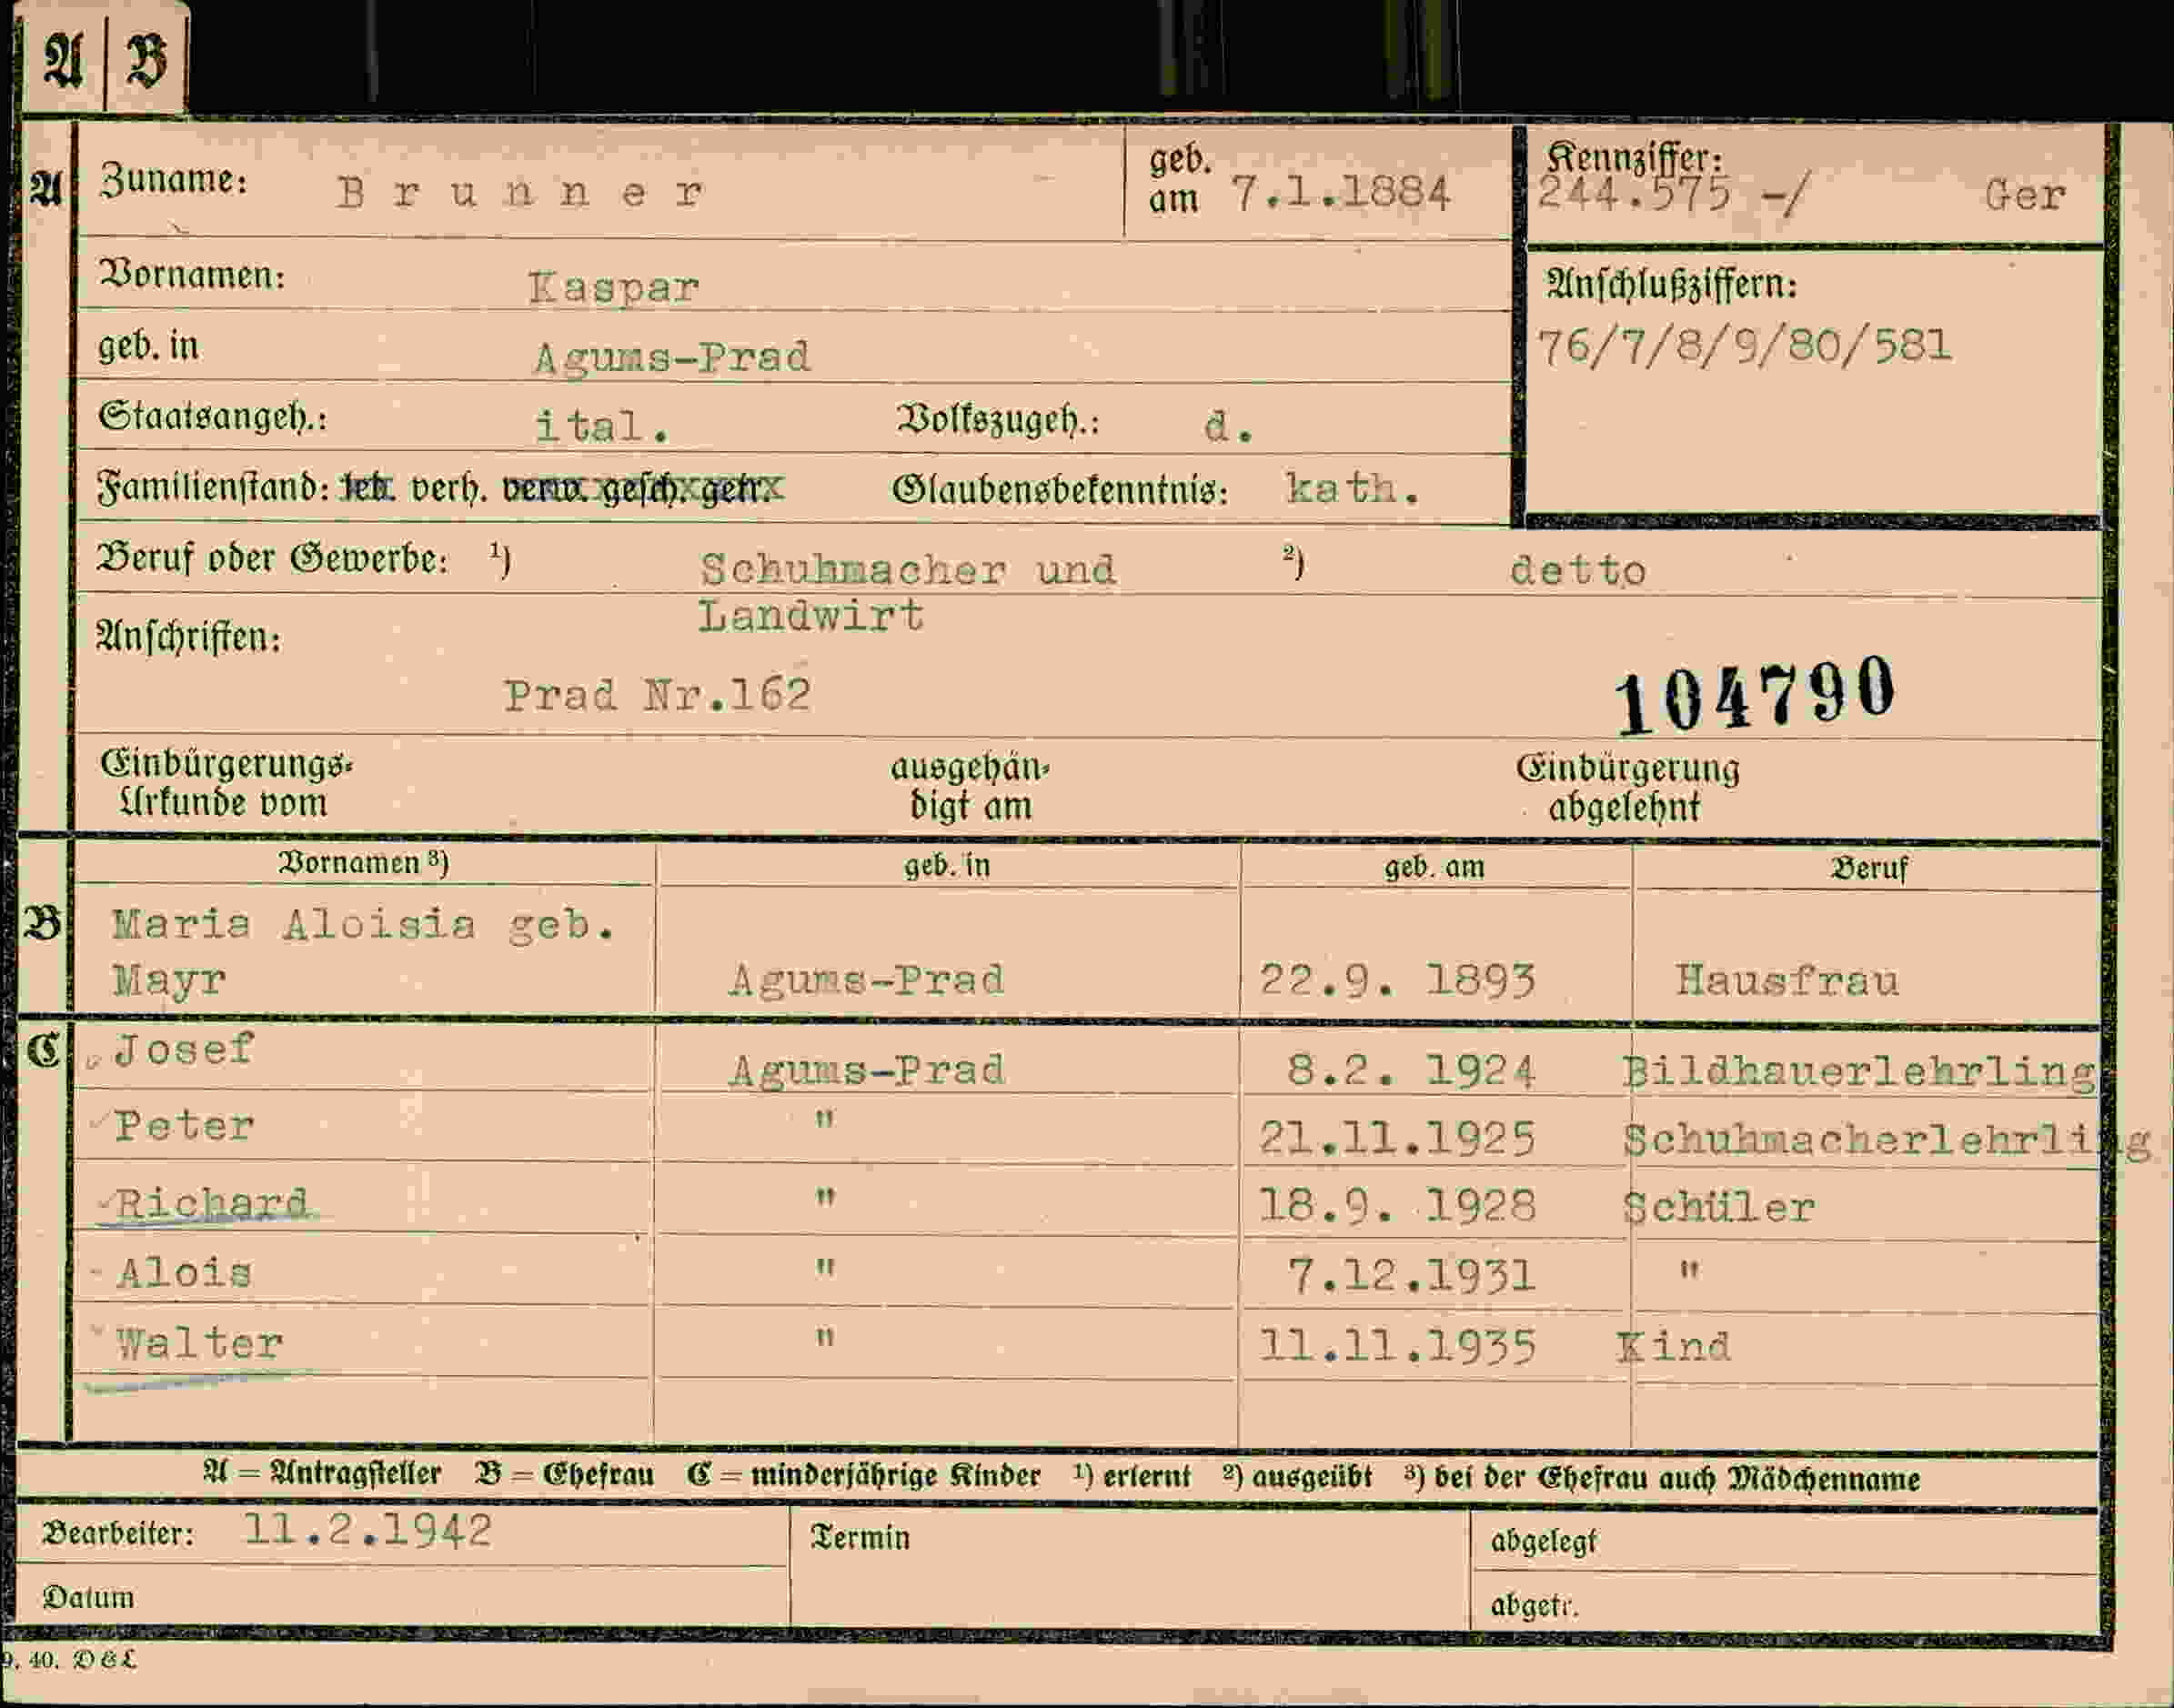 A B
A Zuname: Brunner geb. am 7.1.1884 Kennziffer: 244.575 -/ Ger
Vornamen: Kaspar Anschlußziffern:
geb. in Agums-Prad 76/7/8/9/80/581
Staatsangeh.: ital. Volkszugeh.: d.
Familienstand: led. verh. verw. gesch. getr. Glaubensbekenntnis: kath.
Beruf oder Gewerbe: ¹) Schuhmacher und ²) detto
Landwirt
Anschriften:
Prad Nr.162 104790
Einbürgerungs- ausgehän- Einbürgerung
Urkunde vom digt am abgelehnt
Vornamen ³) geb. in geb. am Beruf
B Maria Aloisia geb.
Mayr Agums-Prad 22.9. 1893 Hausfrau
C Josef Agums-Prad 8.2. 1924 Bildhauerlehrling
Peter " 21.11.1925 Schuhmacherlehrling
Richard " 18.9. 1928 Schüler
Alois " 7.12.1931 "
Walter " 11.11.1935 Kind
A = Antragsteller B = Ehefrau C = minderjährige Kinder ¹) erlernt ²) ausgeübt ³) bei der Ehefrau auch Mädchenname
Bearbeiter: 11.2.1942 Termin abgelegt
Datum abgetr.
9. 40. D & L